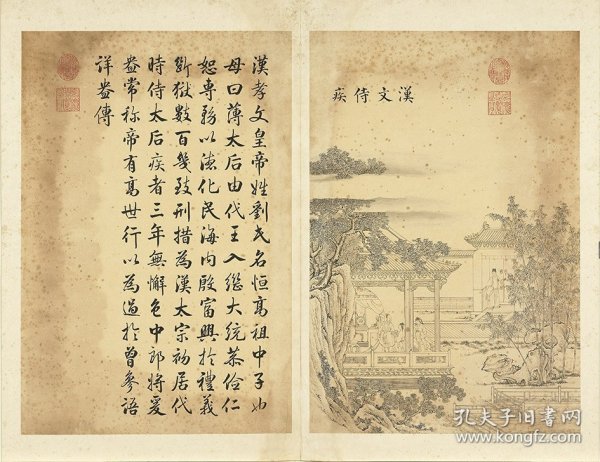 漢文侍疾
漢孝文皇帝姓劉氏名恒高祖中子也
母曰薄太后由代王入繼大統恭儉仁
恕專務以德化民海内殷富興於禮義
斷獄數百幾致刑措為漢太宗初居代
時侍太后疾者三年無懈色中郎將爰
盎常称帝有高世行以為過於曾參語
詳盎傳
孔夫子旧书网
www.kongfz.com